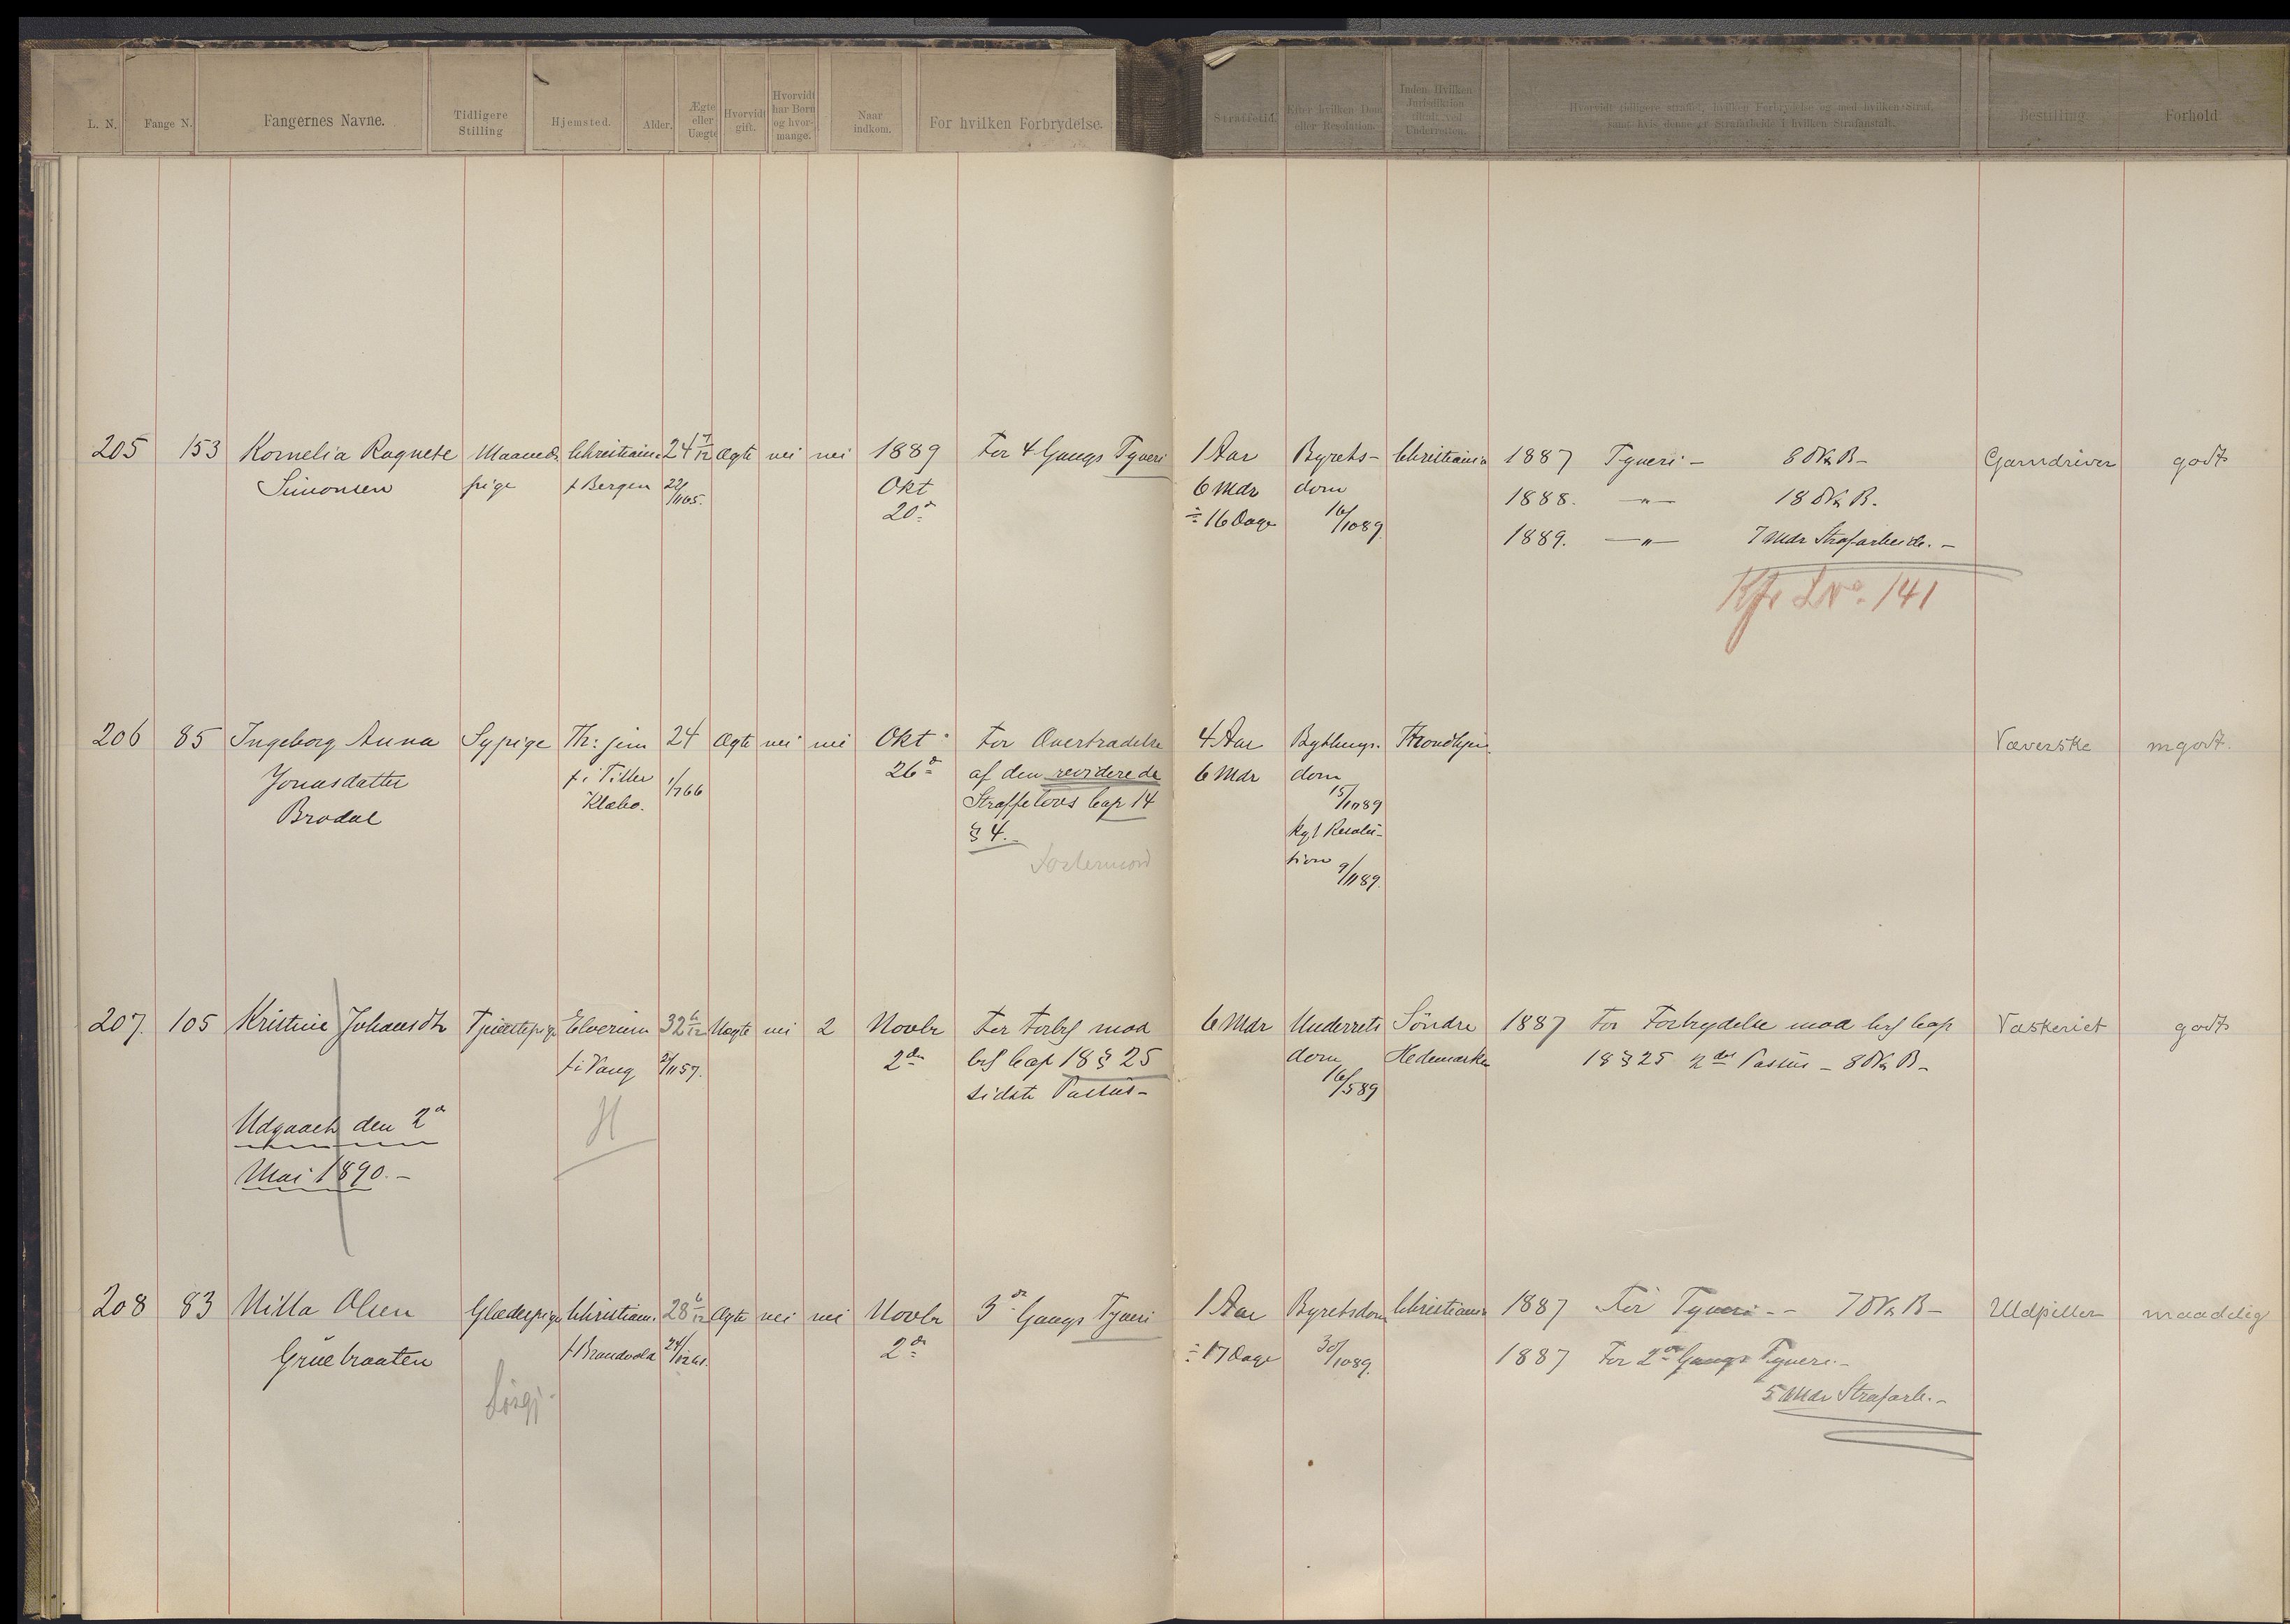 L. N. Fange N. Fangernes Navne. Tidligere Stilling Hjemsted. Alder. Ægte eller Uægte Hvorvidt gift. Hvorvidt har Born og hvor- mange. Naar indkom. For hvilken Forbrydelse. Straffetid. Efter hvilken Dom eller Resolution. Inden Hvilken Jurisdiktion dømt ved Underretten. Hvorvidt tidligere straffet, hvilken Forbrydelse og med hvilken Straf, samt hvis denne er Strafarbeide i hvilken Strafanstalt. Bestilling. Forhold.
205 153 Kornelia Ragnete Maaneds Christiania 24 7/12 Ægte nei nei 1889 For 4 Gangs Tyveri 1 Aar Byrets- Christiania 1887 Tyveri - 8 D V & B - Garndriver godt
Simonsen pige f Bergen 22/1165. Okt 6 Mdr dom 1888. —"— 18 D V & B.
20d ÷ 16 Dage 16/1089. 1889. —"— 7 Mdr Strafarbeide. -
Kfr L No. 141
206 85 Ingeborg Anna Sypige Th: jem 24 Ægte nei nei Okt For Overtrædelse 4 Aar Bythings- Throndhjem Væverske mgodt.
Jonasdatter f i Tiller 1/766 26d af den reviderede 6 Mdr dom
Brodal Klæbo. Straffelovs Cap 14 15/1089
§ 4. kgl Resolu-
Fostermord tion 9/1189.
207. 105 Kristine Johansdtr Tjenestepige Elverum 32 6/12 Uægte nei 2 Novbr For Forbr mod 6 Mdr Underrets Söndre 1887 For Forbrydelse mod Crl Cap Vaskeriet godt
f i Vang 2/1157. 2den Crl Cap 18 § 25 dom Hedemarken 18 § 25 2det Passus - 8 D V & B -
sidste Passus - 16/589
H
Udgaaet den 2d
Mai 1890. -
208 83 Milla Olsen Glædespige Christiania 28 6/12 Ægte nei nei Novbr 3de Gangs Tyveri 1 Aar Byretsdom Christiania 1887 For Tyveri - - 7 D V & B - Uldpiller maadelig
Gruebraaten f Brandvold 24/1261. 2d ÷ 17 Dage 30/1089. 1887 For 2den Gangs Tyveri. -
5 Mdr Strafarb. -